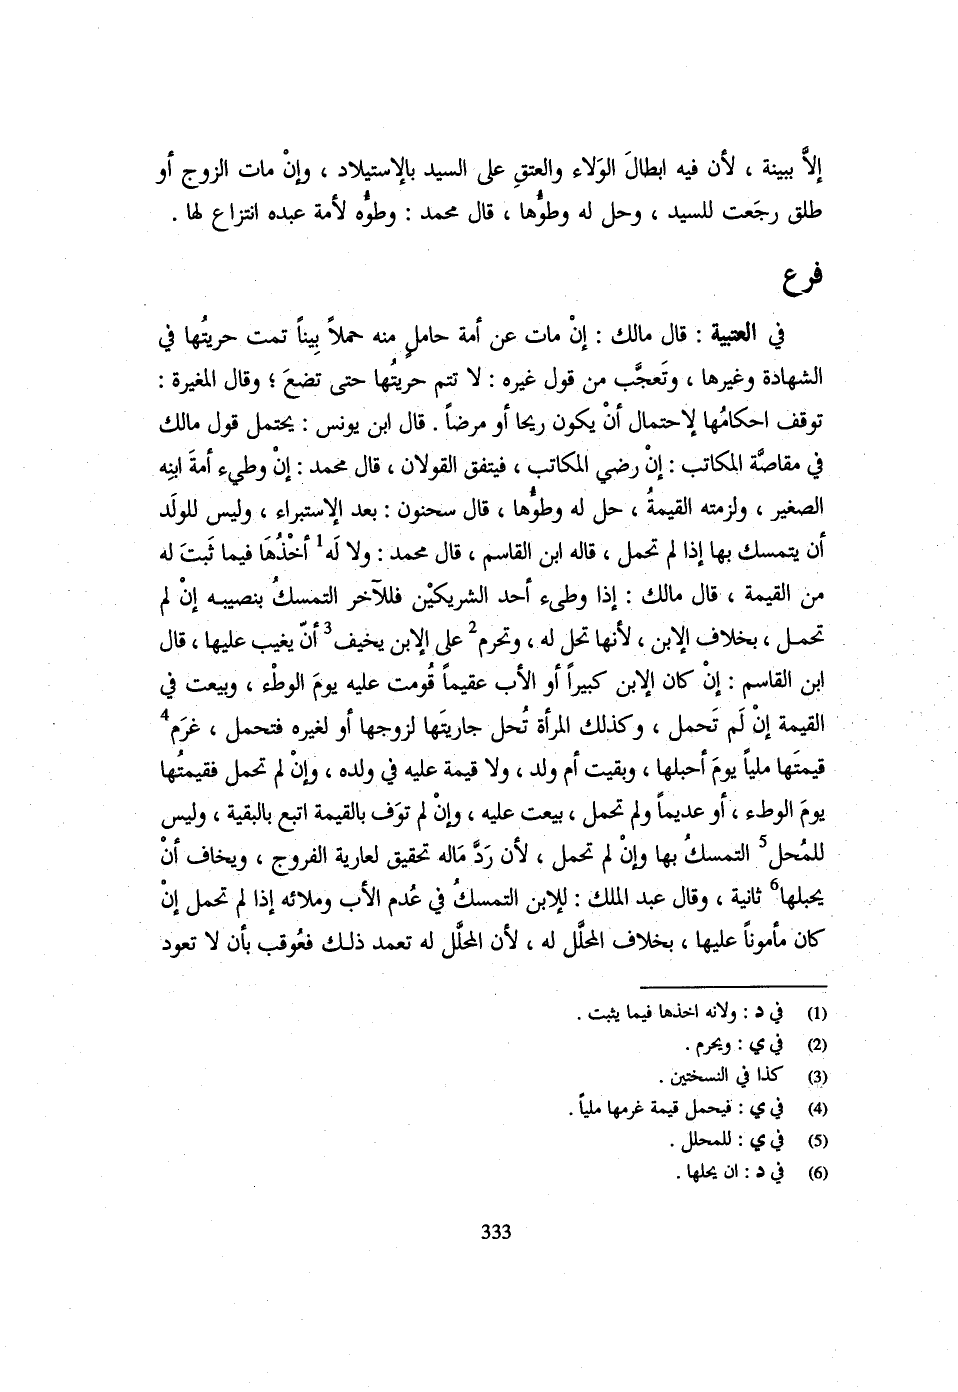 إلاَّ ببينة ، لأن فيه ابطالَ الوَلاء والعتقِ على السيد بالإستيلاد ، وإنْ مات الزوج أو
طلق رجَعت للسيد ، وحل له وطؤُها ، قال محمد : وطؤُه لأمة عبده انتزاع لها .
فرع
في العتبية : قال مالك : إنْ مات عن أمة حاملٍ منه حملاً بِيناً تمت حريتُها في
الشهادة وغيرها ، وتَعجَّب من قول غيره : لا تتم حريتُها حتى تضعَ ؛ وقال المغيرة :
توقف احكامُها لإحتمال أنْ يكون ريحا أو مرضاً . قال ابن يونس : يحتمل قول مالك
في مقاصَّة المكاتب : إنْ رضي المكاتب ، فيتفق القولان ، قال محمد : إنْ وطيء أمةَ ابنِه
الصغير ، ولزمته القيمةُ ، حل له وطؤُها ، قال سحنون : بعد الإستبراء ، وليس للولَد
أن يتمسك بها إذا لم تحمل ، قاله ابن القاسم ، قال محمد : ولا لَه1 أخْذُهَا فيما ثَبتَ له
من القيمة ، قال مالك : إذا وطىء أحد الشريكيْن فللآخر التمسكُ بنصيبه إنْ لم
تحمل ، بخلاف الإبن ، لأنها تحل له ، وتحرم2 على الإبن يخيف3 أنّ يغيب عليها ، قال
ابن القاسم : إنْ كان الإبن كبيراً أو الأب عقيماً قُومت عليه يومَ الوطْء ، وبيعت في
القيمة إنْ لَم تَحمل ، وكذلك المرأة تُحل جاريتَها لزوجها أو لغيره فتحمل ، غرَم4
قيمتَها ملياً يومَ أحبلها ، وبقيت أم ولد ، ولا قيمة عليه في ولده ، وإنْ لم تحمل فقيمتُها
يومَ الوطء ، أو عديماً ولم تحمل ، بيعت عليه ، وإنْ لم توَف بالقيمة اتبع بالبقية ، وليس
للمُحل5 التمسكُ بها وإنْ لم تحمل ، لأن رَدَّ مَاله تحقيق لعارية الفروج ، ويخاف أنْ
يحبلها6 ثانية ، وقال عبد الملك : للإبن التمسكُ في عُدم الأب وملائه إذا لم تحمل إنْ
كان مأموناً عليها ، بخلاف المحلَّل له ، لأن المحلَّل له تعمد ذلك فعُوقب بأن لا تعود
(1) في د : ولانه اخذها فيما يثبت .
(2) في ي : ويحرم .
(3) كذا في النسختين .
(4) في ي : فيحمل قيمة غرمها ملياً .
(5) في ي : للمحلل .
(6) في د : ان يحلها .
333